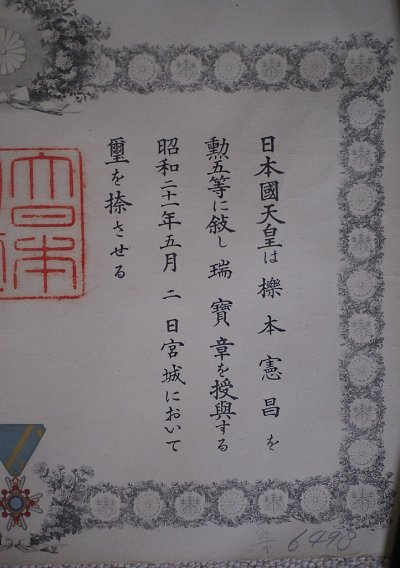 日本國天皇は擽本憲昌を
勲五等に敍し瑞寶章を授與する
昭和二十一年五月二日宮城において
璽を捺させる
大日本
6498